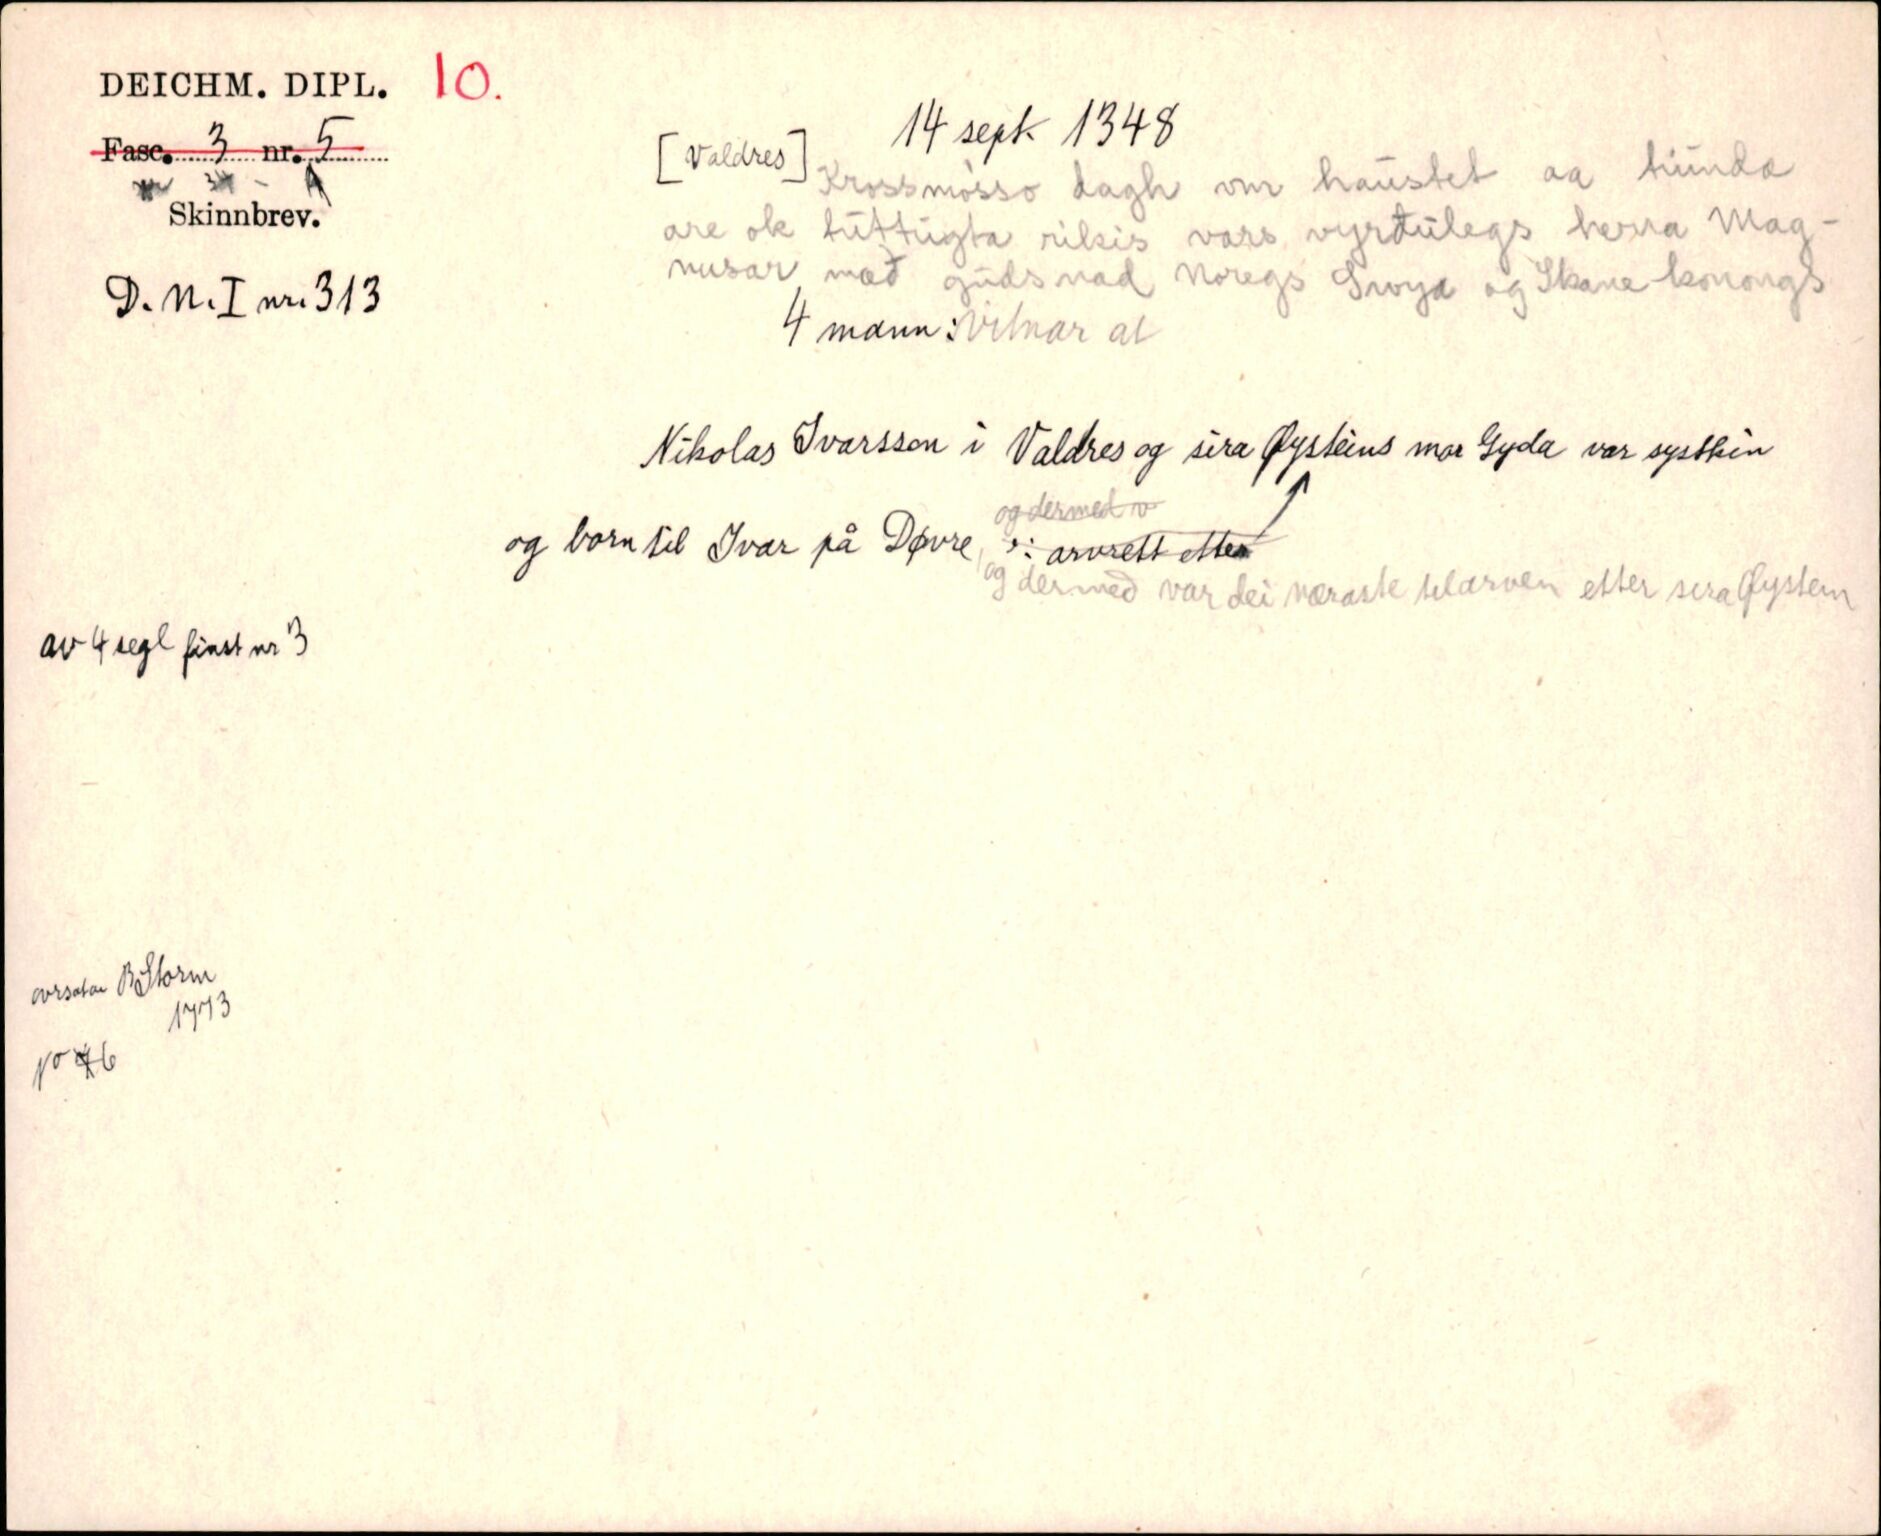 DEICHM. DIPL. 10.
Fasc. 3 nr. 5
Skinnbrev.
D. N. I nr. 313
14 sept. 1348
[Valdres] Krossmòsso dagh vm haustet aa tiunda
are ok tuttugta rikis vars vyrðulegs herra Mag-
nusar með guds nad Noregs Swya og Skane konongs
4 mann: Vitnar at
Nikolas Ivarsson i Valdres og sira Øysteins mor Gyda var systkin
og dermed v
og born til Ivar på Dovre, ɔ: arvrett etter
og dermed var dei næraste til arven etter sira Øystein
av 4 segl finst nr 3
avrsatan B Storm
1773
No 6